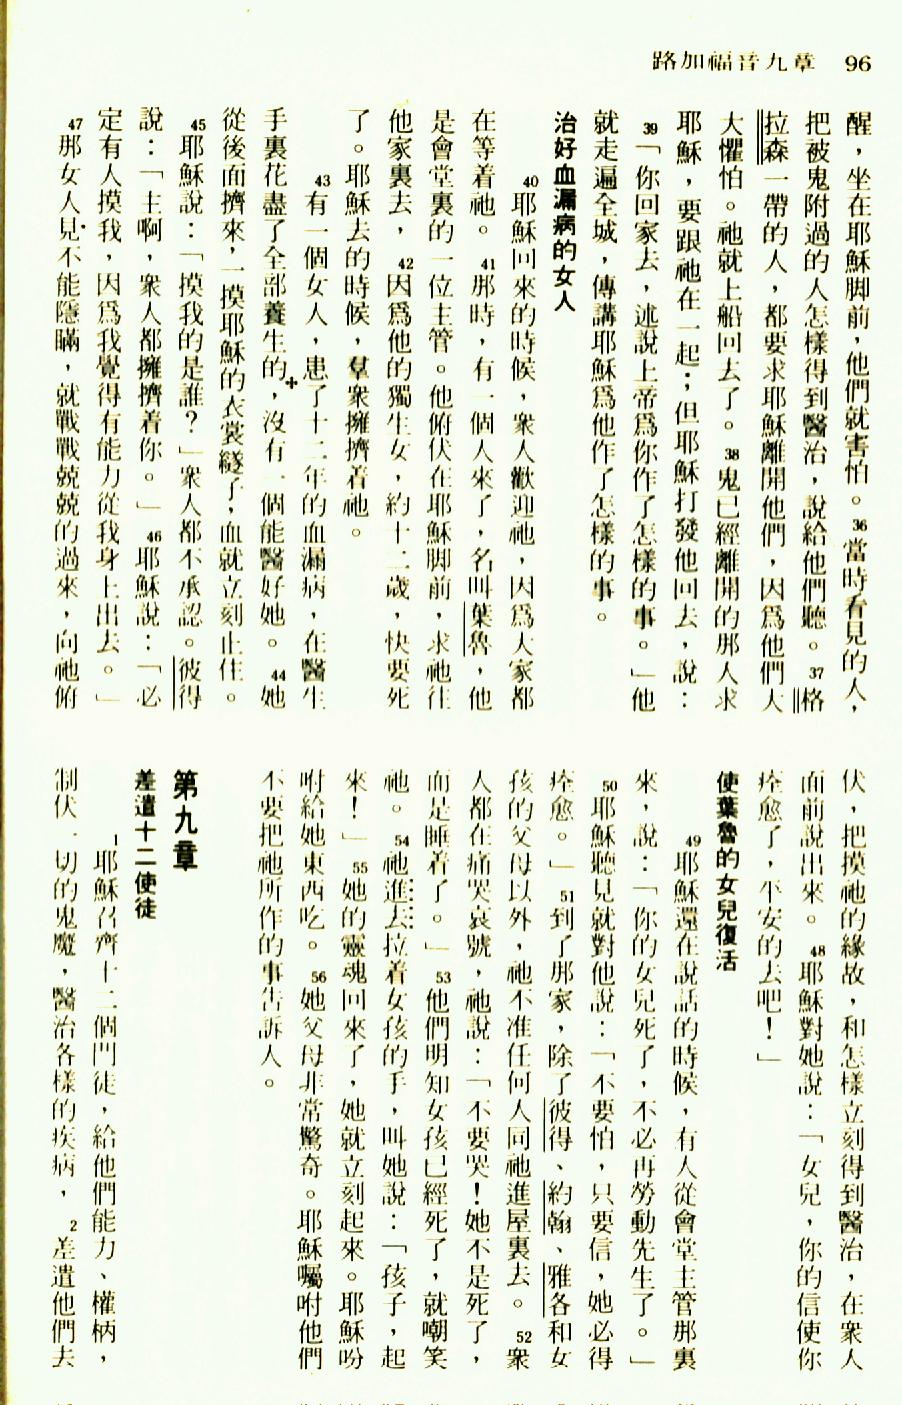 路加福音九章 96
醒，坐在耶穌脚前，他們就害怕。36當時看見的人，
把被鬼附過的人怎樣得到醫治，說給他們聽。37格
拉森一帶的人，都要求耶穌離開他們，因爲他們大
大懼怕。祂就上船回去了。38鬼已經離開的那人求
耶穌，要跟祂在一起；但耶穌打發他回去，說：
39「你回家去，述說上帝爲你作了怎樣的事。」他
就走遍全城，傳講耶穌爲他作了怎樣的事。
治好血漏病的女人
40耶穌回來的時候，衆人歡迎祂，因爲大家都
在等着祂。41那時，有一個人來了，名叫葉魯，他
是會堂裏的一位主管。他俯伏在耶穌脚前，求祂往
他家裏去，42因爲他的獨生女，約十二歲，快要死
了。耶穌去的時候，羣衆擁擠着祂。
43有一個女人，患了十二年的血漏病，在醫生
手裏花盡了全部養生的，沒有一個能醫好她。44她
從後面擠來，一摸耶穌的衣裳繸子，血就立刻止住。
45耶穌說：「摸我的是誰？」衆人都不承認。彼得
說：「主啊，衆人都擁擠着你。」46耶穌說：「必
定有人摸我，因爲我覺得有能力從我身上出去。」
47那女人見不能隱瞞，就戰戰兢兢的過來，向祂俯
伏，把摸祂的緣故，和怎樣立刻得到醫治，在衆人
面前說出來。48耶穌對她說：「女兒，你的信使你
痊愈了，平安的去吧！」
使葉魯的女兒復活
49耶穌還在說話的時候，有人從會堂主管那裏
來，說：「你的女兒死了，不必再勞動先生了。」
50耶穌聽見就對他說：「不要怕，只要信，她必得
痊愈。」51到了那家，除了彼得、約翰、雅各和女
孩的父母以外，祂不准任何人同祂進屋裏去。52衆
人都在痛哭哀號，祂說：「不要哭！她不是死了，
而是睡着了。」53他們明知女孩已經死了，就嘲笑
祂。54祂進去拉着女孩的手，叫她說：「孩子，起
來！」55她的靈魂回來了，她就立刻起來。耶穌吩
咐給她東西吃。56她父母非常驚奇。耶穌囑咐他們
不要把祂所作的事告訴人。
第九章
差遣十二使徒
1耶穌召齊十二個門徒，給他們能力、權柄，
制伏一切的鬼魔，醫治各樣的疾病，2差遣他們去